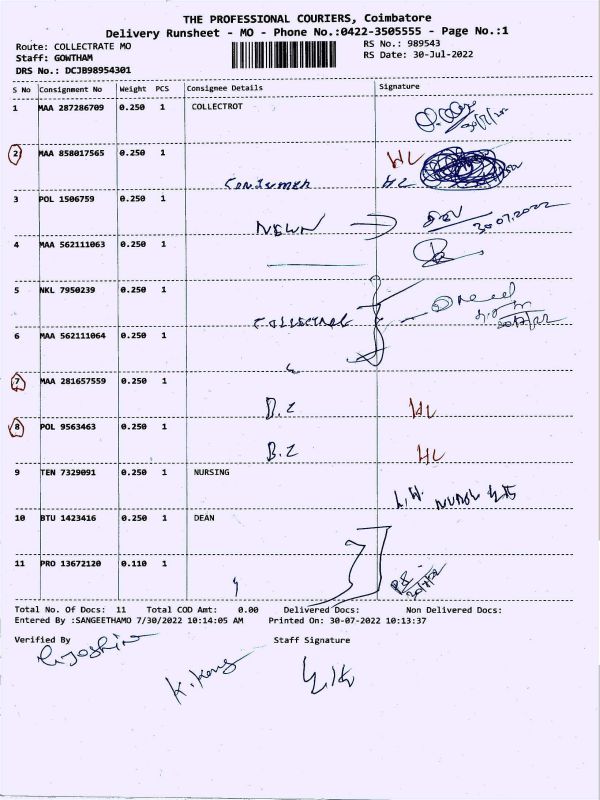 THE PROFESSIONAL COURIERS, Coimbatore
Delivery Runsheet - MO - Phone No.:0422-3505555 - Page No.:1
Route: COLLECTRATE MO RS No.: 989543
Staff: GOWTHAM RS Date: 30-Jul-2022
DRS No.: DCJB98954301
S No Consignment No Weight PCS Consignee Details Signature
1 MAA 287286709 0.250 1 COLLECTROT
30/7/22
2 MAA 858017565 0.250 1 HL
Consumer HL
3 POL 1506759 0.250 1
NEWN 30.07.2022
4 MAA 562111063 0.250 1
5 NKL 7950239 0.250 1
Collectorat
6 MAA 562111064 0.250 1
7 MAA 281657559 0.250 1
D.2 HL
8 POL 9563463 0.250 1
B.2 HL
9 TEN 7329091 0.250 1 NURSING
10 BTU 1423416 0.250 1 DEAN
11 PRO 13672120 0.110 1
Total No. Of Docs: 11 Total COD Amt: 0.00 Delivered Docs: Non Delivered Docs:
Entered By :SANGEETHAMO 7/30/2022 10:14:05 AM Printed On: 30-07-2022 10:13:37
Verified By Staff Signature